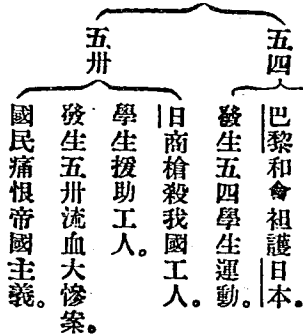 五四
巴黎和會袒護日本。
發生五四學生運動。
五卅
日商槍殺我國工人。
學生援助工人。
發生五卅流血大慘案。
國民痛恨帝國主義。